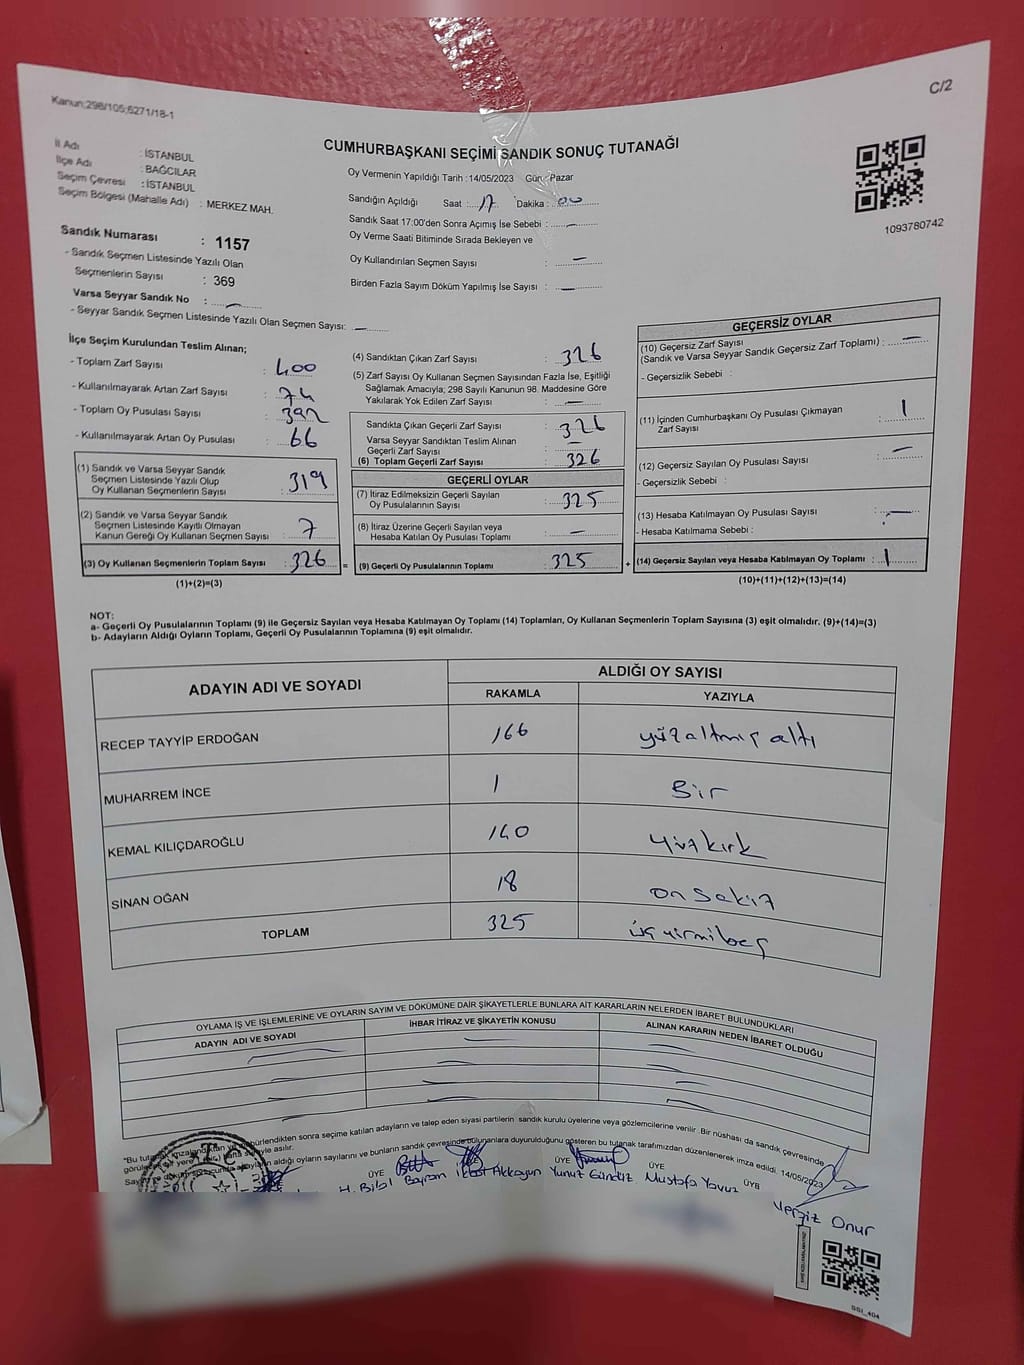 Kanun;298/105;6271/18-1
C/2
İl Adı : İSTANBUL
İlçe Adı : BAĞCILAR
Seçim Çevresi : İSTANBUL
Seçim Bölgesi (Mahalle Adı) : MERKEZ MAH.
CUMHURBAŞKANI SEÇİMİ SANDIK SONUÇ TUTANAĞI
Oy Vermenin Yapıldığı Tarih : 14/05/2023 Gün : Pazar
Sandığın Açıldığı Saat : 17 Dakika : 00
Sandık Saat 17:00'den Sonra Açımış İse Sebebi : —
Oy Verme Saati Bitiminde Sırada Bekleyen ve
Oy Kullandırılan Seçmen Sayısı : —
Birden Fazla Sayım Döküm Yapılmış İse Sayısı : —
1093780742
Sandık Numarası : 1157
- Sandık Seçmen Listesinde Yazılı Olan
Seçmenlerin Sayısı : 369
Varsa Seyyar Sandık No : —
- Seyyar Sandık Seçmen Listesinde Yazılı Olan Seçmen Sayısı: —
İlçe Seçim Kurulundan Teslim Alınan;
- Toplam Zarf Sayısı : 400
- Kullanılmayarak Artan Zarf Sayısı : 74
- Toplam Oy Pusulası Sayısı : 392
- Kullanılmayarak Artan Oy Pusulası : 66
(1) Sandık ve Varsa Seyyar Sandık
Seçmen Listesinde Yazılı Olup
Oy Kullanan Seçmenlerin Sayısı : 319
(2) Sandık ve Varsa Seyyar Sandık
Seçmen Listesinde Kayıtlı Olmayan
Kanun Gereği Oy Kullanan Seçmen Sayısı : 7
(3) Oy Kullanan Seçmenlerin Toplam Sayısı : 326 =
(1)+(2)=(3)
(4) Sandıktan Çıkan Zarf Sayısı : 326
(5) Zarf Sayısı Oy Kullanan Seçmen Sayısından Fazla İse, Eşitliği
Sağlamak Amacıyla; 298 Sayılı Kanunun 98. Maddesine Göre
Yakılarak Yok Edilen Zarf Sayısı : —
Sandıkta Çıkan Geçerli Zarf Sayısı : 326
Varsa Seyyar Sandıktan Teslim Alınan
Geçerli Zarf Sayısı : —
(6) Toplam Geçerli Zarf Sayısı : 326
GEÇERLİ OYLAR
(7) İtiraz Edilmeksizin Geçerli Sayılan
Oy Pusulalarının Sayısı : 325
(8) İtiraz Üzerine Geçerli Sayılan veya
Hesaba Katılan Oy Pusulası Toplamı : —
(9) Geçerli Oy Pusulalarının Toplamı : 325 +
GEÇERSİZ OYLAR
(10) Geçersiz Zarf Sayısı
(Sandık ve Varsa Seyyar Sandık Geçersiz Zarf Toplamı) : —
- Geçersizlik Sebebi :
(11) İçinden Cumhurbaşkanı Oy Pusulası Çıkmayan
Zarf Sayısı : 1
(12) Geçersiz Sayılan Oy Pusulası Sayısı : —
- Geçersizlik Sebebi :
(13) Hesaba Katılmayan Oy Pusulası Sayısı : —
- Hesaba Katılmama Sebebi :
(14) Geçersiz Sayılan veya Hesaba Katılmayan Oy Toplamı : 1
(10)+(11)+(12)+(13)=(14)
NOT:
a- Geçerli Oy Pusulalarının Toplamı (9) ile Geçersiz Sayılan veya Hesaba Katılmayan Oy Toplamı (14) Toplamları, Oy Kullanan Seçmenlerin Toplam Sayısına (3) eşit olmalıdır. (9)+(14)=(3)
b- Adayların Aldığı Oyların Toplamı, Geçerli Oy Pusulalarının Toplamına (9) eşit olmalıdır.
ADAYIN ADI VE SOYADI
ALDIĞI OY SAYISI
RAKAMLA YAZIYLA
RECEP TAYYİP ERDOĞAN 166 yüzaltmış altı
MUHARREM İNCE 1 Bir
KEMAL KILIÇDAROĞLU 140 Yüzkırk
SİNAN OĞAN 18 on sekiz
TOPLAM 325 üçyirmibeş
OYLAMA İŞ VE İŞLEMLERİNE VE OYLARIN SAYIM VE DÖKÜMÜNE DAİR ŞİKAYETLERLE BUNLARA AİT KARARLARIN NELERDEN İBARET BULUNDUKLARI
ADAYIN ADI VE SOYADI İHBAR İTİRAZ VE ŞİKAYETİN KONUSU ALINAN KARARIN NEDEN İBARET OLDUĞU
sonra seçime katılan adayların ve talep eden siyasi partilerin sandık kurulu üyelerine veya gözlemcilerine verilir. Bir nüshası da sandık çevresinde
asılır.
aldığı oyların sayılarını ve bunların sandık çevresinde bulunanlara duyurulduğunu gösteren bu tutanak tarafımızdan düzenlenerek imza edildi. 14/05/2023
ÜYE ÜYE ÜYE ÜYE
Bayram Akkoyun Yunuz Gündüz Mustafa Yavuz
Onur
SSI_404